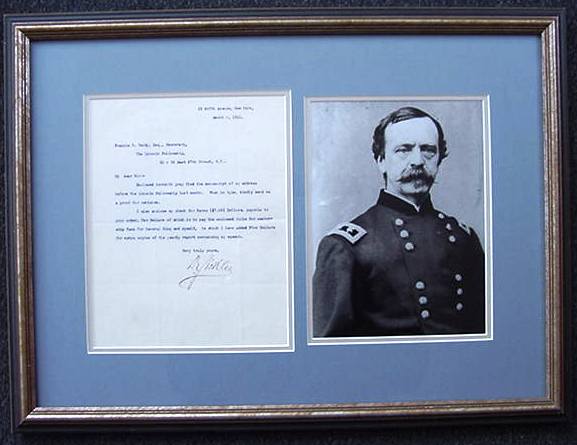 23 Fifth Avenue, New York,
March 6, 1911.
Francis D. Tandy, Esq., Secretary,
The Lincoln Fellowship,
32 - 38 East 27th Street, N.Y.
My dear Sir:-
Enclosed herewith pray find the manuscript of my address
before the Lincoln Fellowship last month. When in type, kindly send me
a proof for revision.
I also enclose my check for Seven ($7.00) Dollars, payable to
your order, Two Dollars of which is to pay the enclosed bills for
fees for General King and myself, to which I have added Five Dollars
for extra copies of the yearly report containing my speech.
Very truly yours,